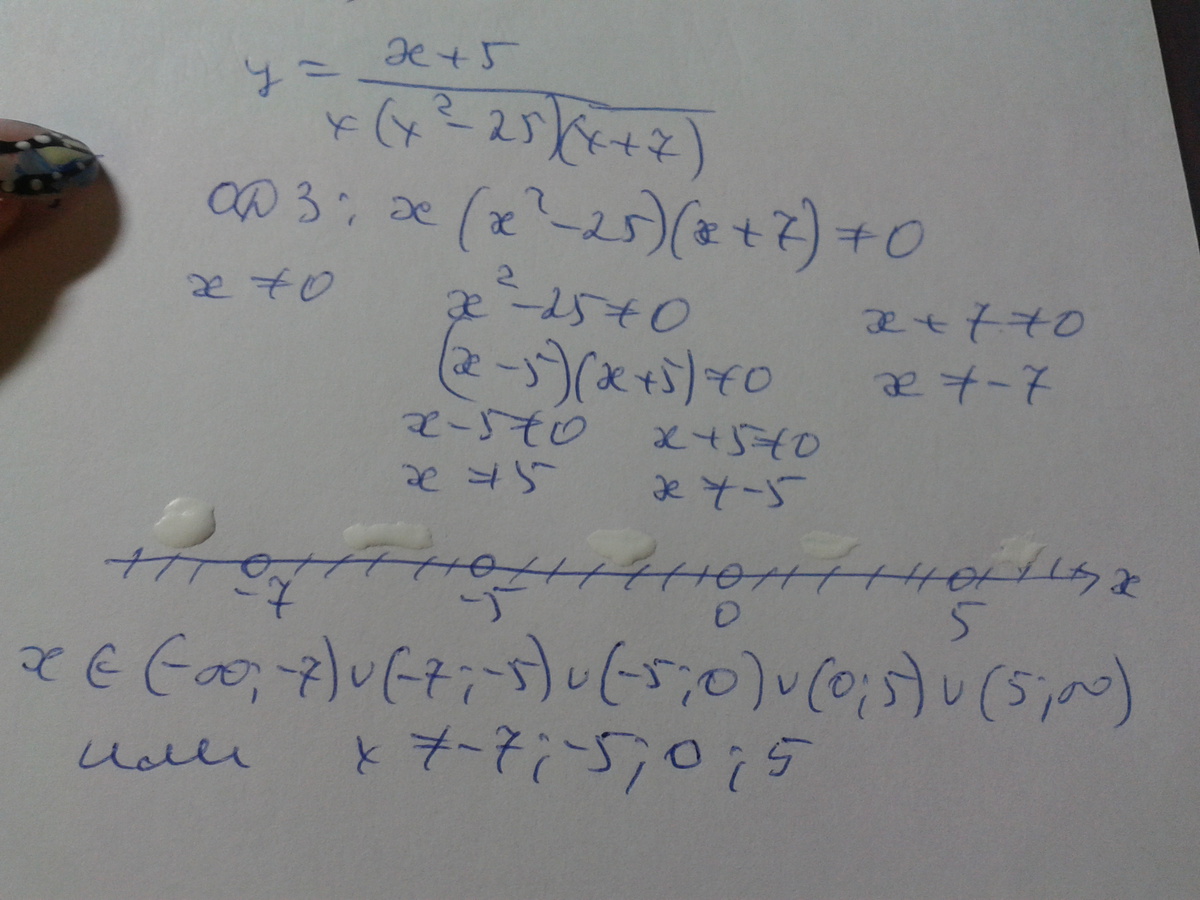 y = x+5 / x(x²-25)(x+7)
ОДЗ: x(x²-25)(x+7)≠0
x≠0 x²-25≠0 x+7≠0
(x-5)(x+5)≠0 x≠-7
x-5≠0 x+5≠0
x≠5 x≠-5
-7 -5 0 5 x
x∈(-∞;-7)∪(-7;-5)∪(-5;0)∪(0;5)∪(5;∞)
или x≠-7;-5;0;5